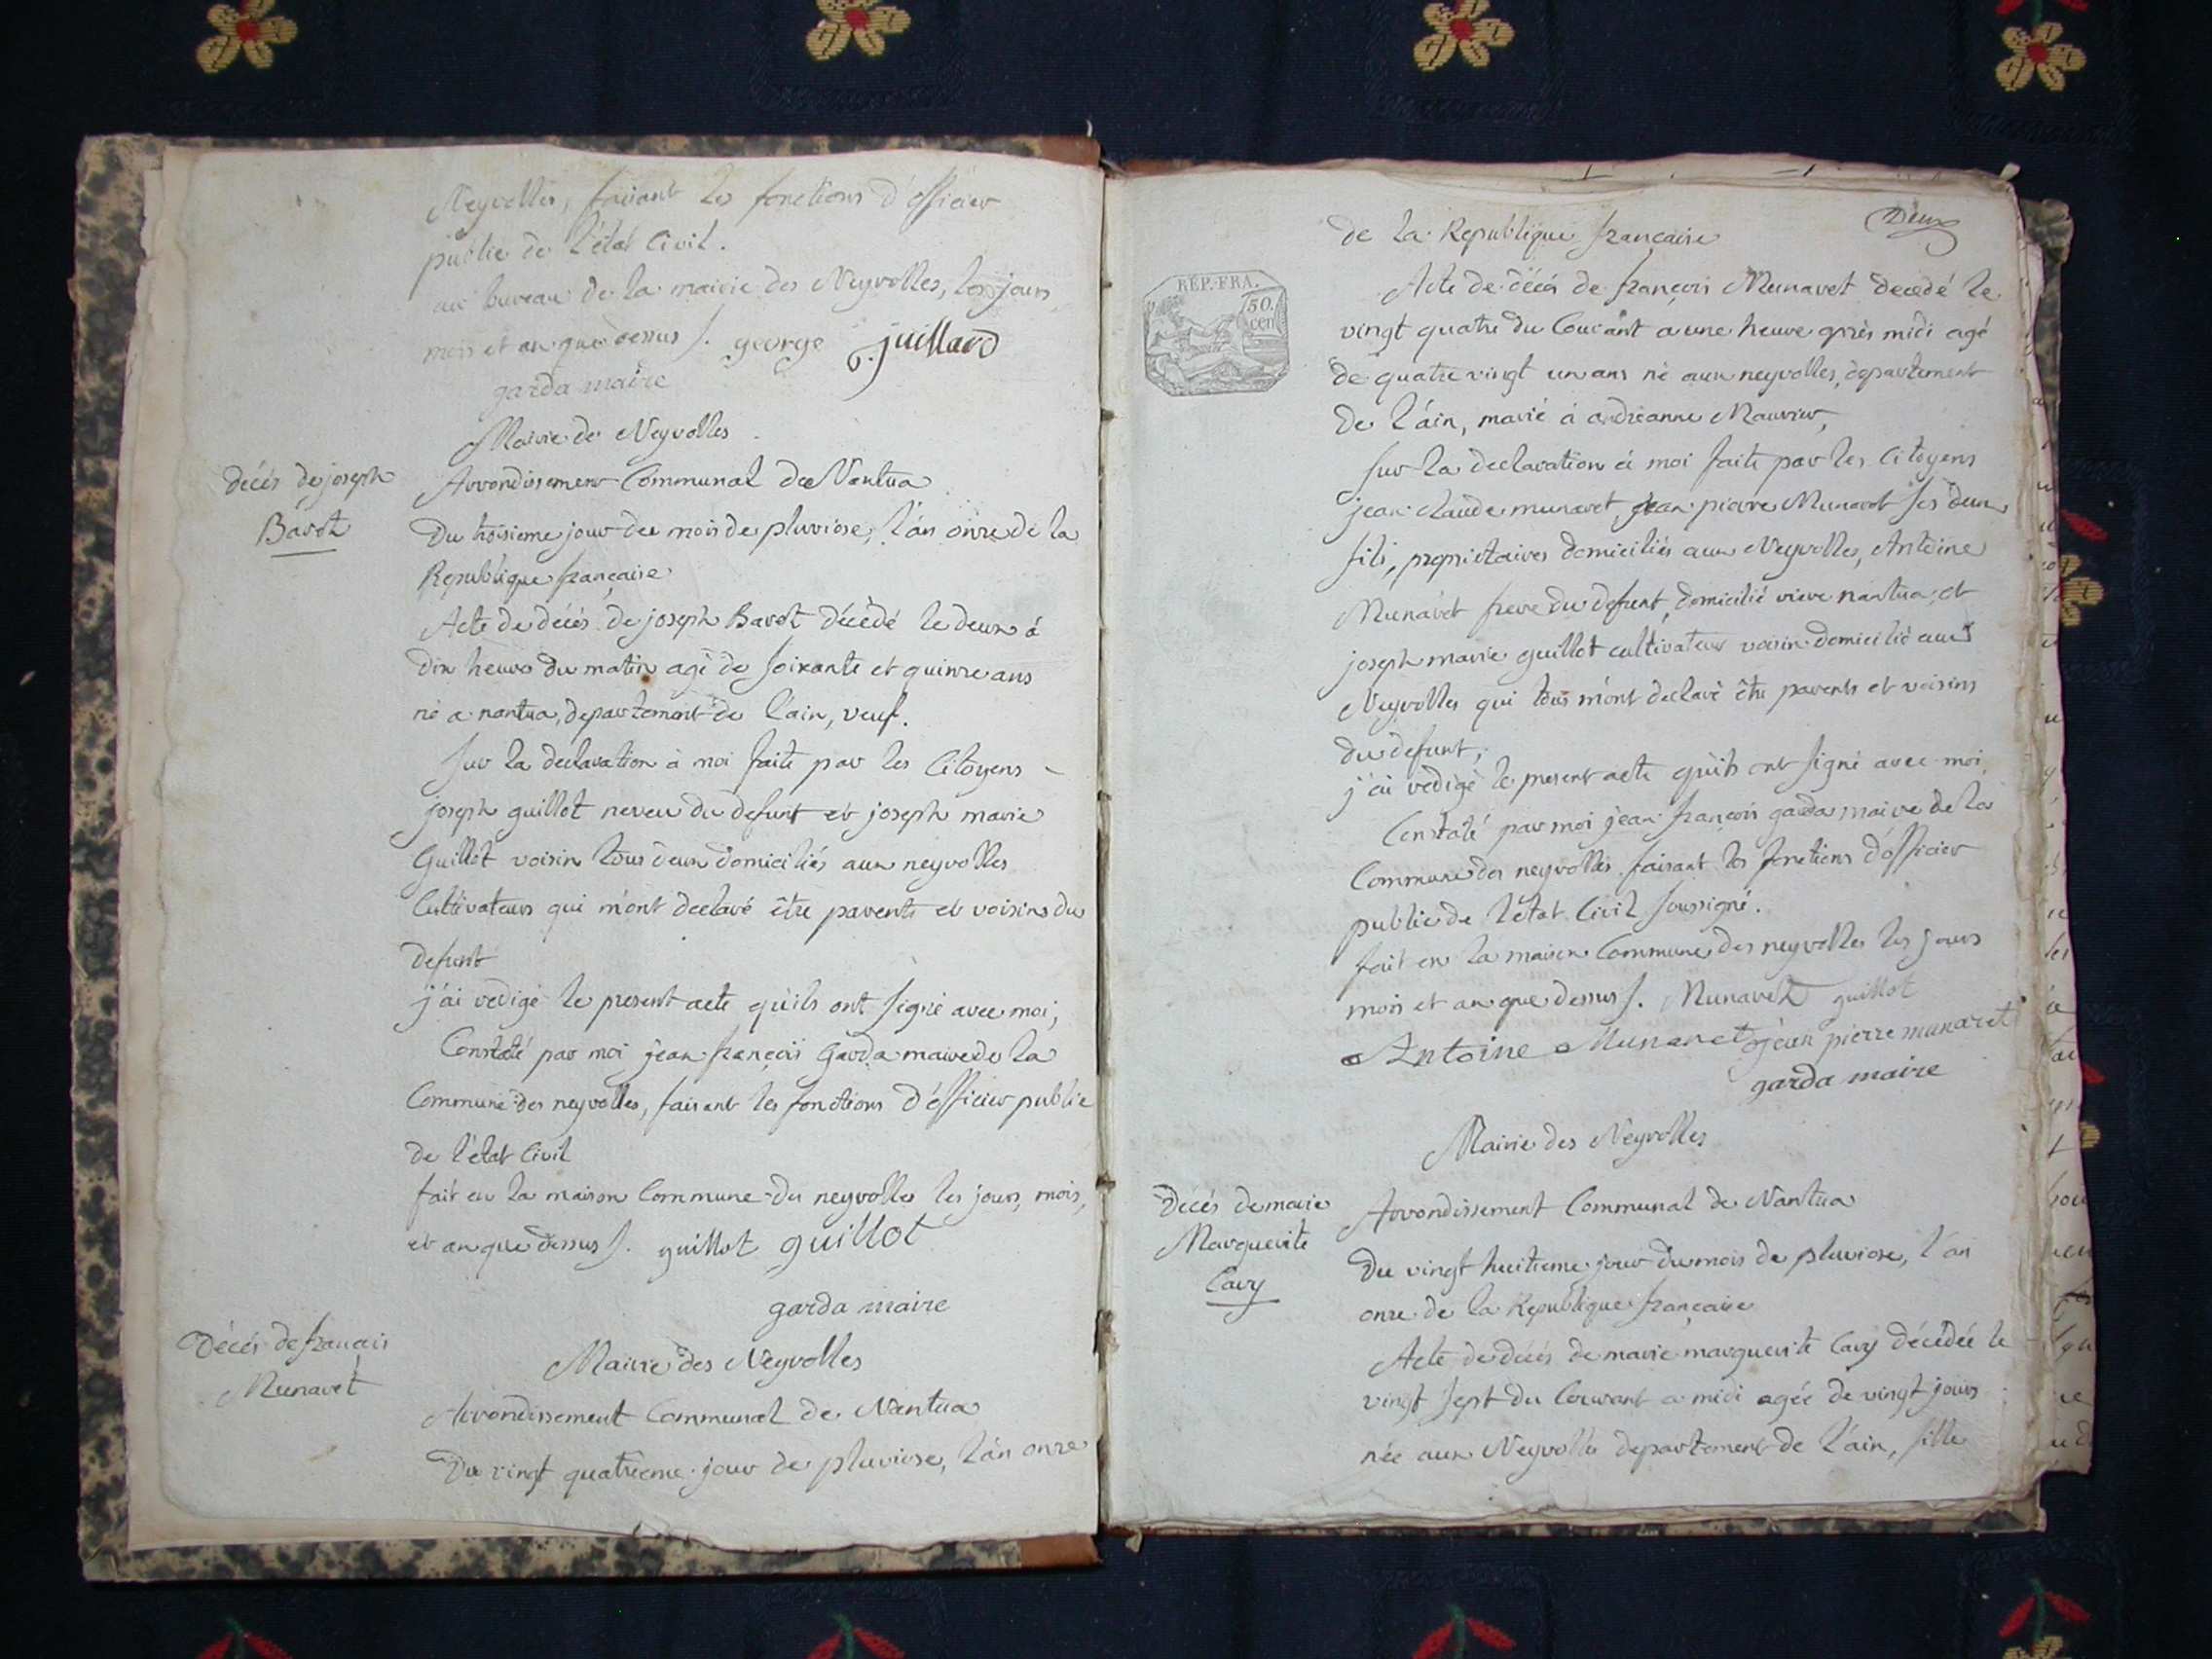 Neyrolles, faisant les fonctions d'officier
public de l'état Civil.
au bureau de la mairie des Neyrolles, les jours
mois et an que dessus /. george j. juillard
garda maire
Mairie de Neyrolles
décés de joseph
Barot
Arrondissement Communal de Nantua
Du troisieme jour du mois de pluviose, l'an onze de la
Republique française
Acte de décés de joseph Barot décédé le deux à
dix heures du matin agé de soixante et quinze ans
né a nantua, departement de l'ain, veuf.
Sur la declaration à moi faite par les Citoyens
joseph guillot neveu du defunt et joseph marie
Guillot voisin tous deux domiciliés aux neyrolles
Cultivateurs qui m'ont declaré être parents et voisins du
defunt
j'ai redigé le present acte qu'ils ont signé avec moi,
Constaté par moi jean françois Garda maire de la
Commune des neyrolles, faisant les fonctions d'officier public
de l'état Civil
fait en la maison Commune des neyrolles les jours, mois,
et an que dessus /. guillot guillot
garda maire
Décés de français
Munaret
Mairie des Neyrolles
Arrondissement Communal de Nantua
Du vingt quatrieme jour de pluviose, l'an onze
Deux
de la Republique française
RÉP. FRA.
50.
cen
Acte de décés de françois Munaret decedé le
vingt quatre du Courant a une heure après midi agé
de quatre vingt un ans né aux neyrolles, departement
de l'ain, marié à andréanne Maurier,
Sur la declaration à moi faite par les Citoyens
jean claude munaret, jean pierre Munaret ses deux
fils, proprietaires domiciliés aux Neyrolles, Antoine
Munaret frere du defunt, domicilié riere nantua, et
joseph marie guillot cultivateur voisin domicilié aux
Neyrolles qui tous m'ont declaré être parents et voisins
du defunt,
j'ai redigé le present acte qu'ils ont signé avec moi
Constaté par moi jean françois garda maire de la
Commune des neyrolles faisant les fonctions d'officier
public de l'état Civil soussigné.
fait en la maison Commune des neyrolles les jours
mois et an que dessus /. Munaret guillot
Antoine Munaret jean pierre munaret
garda maire
Mairie des Neyrolles
Décés de marie
Marguerite
Cary
Arrondissement Communal de Nantua
Du vingt huitieme jour du mois de pluviose, l'an
onze de la Republique française
Acte de décés de marie marguerite Cary décédée le
vingt sept du Courant a midi agée de vingt jours
née aux Neyrolles departement de l'ain, fille